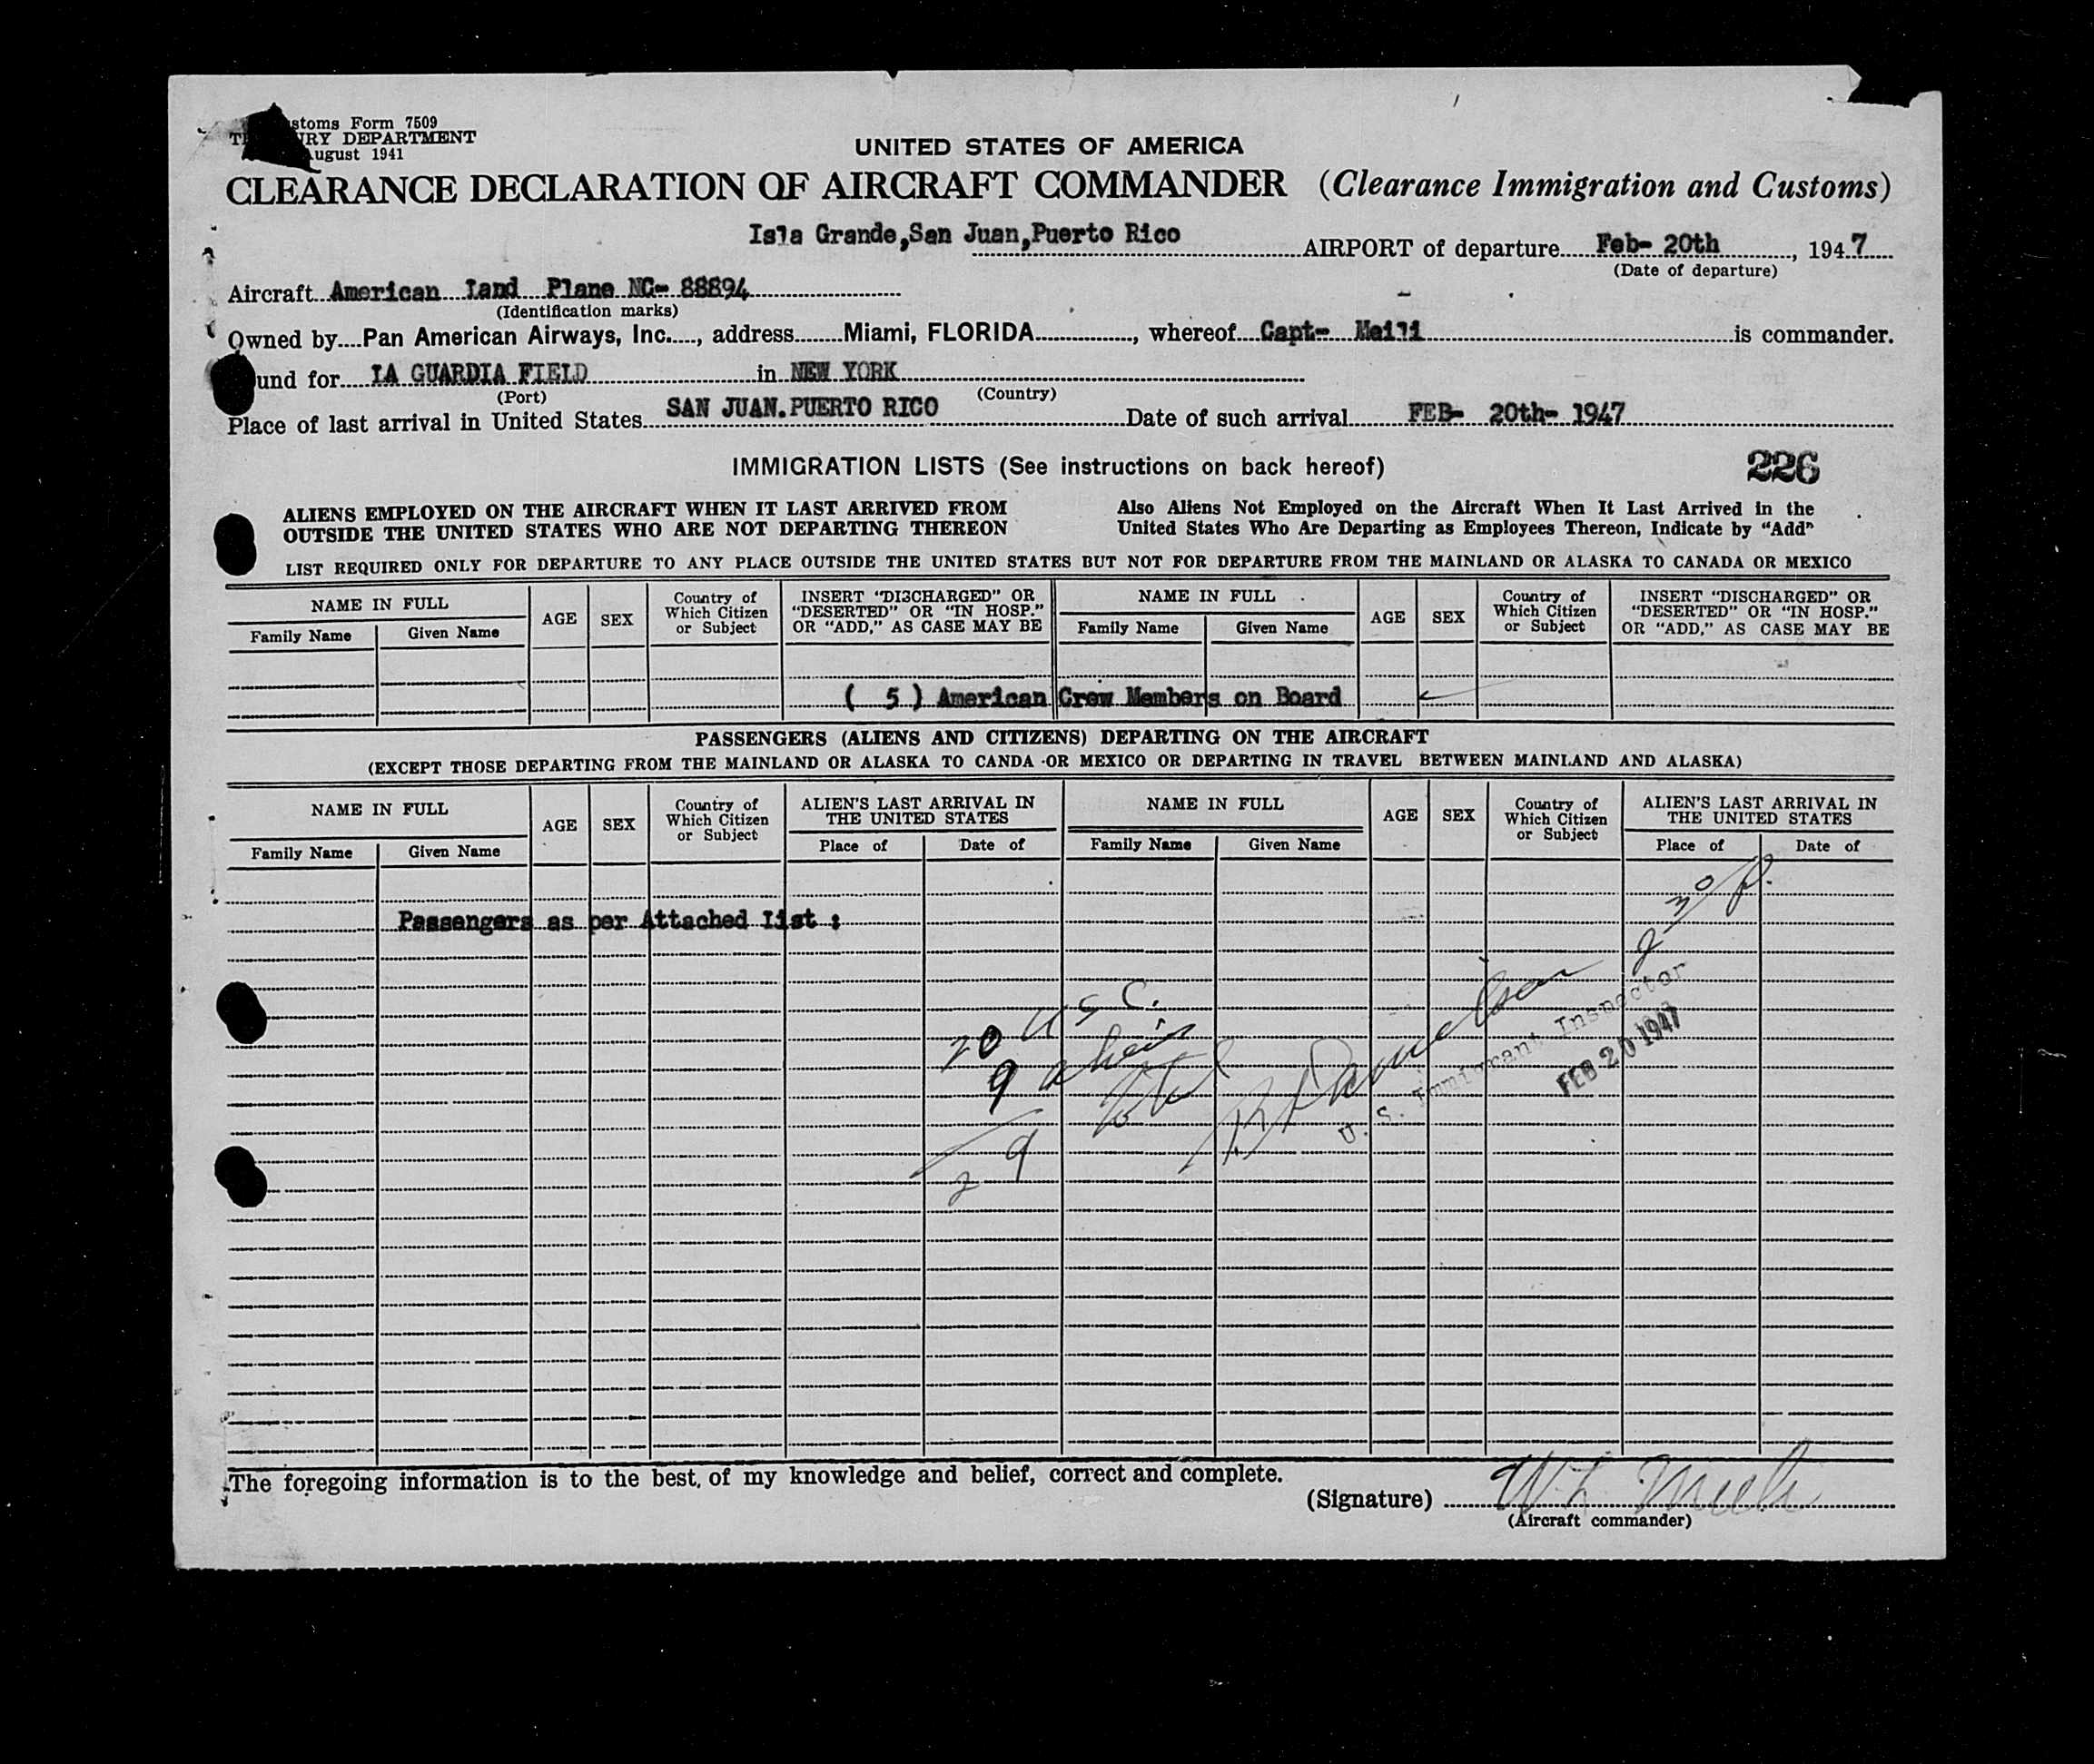 stoms Form 7509
T RY DEPARTMENT
ugust 1941
UNITED STATES OF AMERICA
CLEARANCE DECLARATION OF AIRCRAFT COMMANDER (Clearance Immigration and Customs)
Isla Grande,San Juan,Puerto Rico AIRPORT of departure Feb- 20th, 1947
(Date of departure)
Aircraft American Land Plane NC- 88894
(Identification marks)
Owned by Pan American Airways, Inc., address Miami, FLORIDA, whereof Capt- Meili is commander.
und for LA GUARDIA FIELD in NEW YORK
(Port) (Country)
Place of last arrival in United States SAN JUAN.PUERTO RICO Date of such arrival FEB- 20th- 1947
IMMIGRATION LISTS (See instructions on back hereof) 226
ALIENS EMPLOYED ON THE AIRCRAFT WHEN IT LAST ARRIVED FROM Also Aliens Not Employed on the Aircraft When It Last Arrived in the
OUTSIDE THE UNITED STATES WHO ARE NOT DEPARTING THEREON United States Who Are Departing as Employees Thereon, Indicate by "Add"
LIST REQUIRED ONLY FOR DEPARTURE TO ANY PLACE OUTSIDE THE UNITED STATES BUT NOT FOR DEPARTURE FROM THE MAINLAND OR ALASKA TO CANADA OR MEXICO
NAME IN FULL AGE SEX Country of Which Citizen or Subject INSERT "DISCHARGED" OR "DESERTED" OR "IN HOSP." OR "ADD," AS CASE MAY BE NAME IN FULL AGE SEX Country of Which Citizen or Subject INSERT "DISCHARGED" OR "DESERTED" OR "IN HOSP." OR "ADD," AS CASE MAY BE
Family Name Given Name Family Name Given Name
( 5 ) American Crew Members on Board
PASSENGERS (ALIENS AND CITIZENS) DEPARTING ON THE AIRCRAFT
(EXCEPT THOSE DEPARTING FROM THE MAINLAND OR ALASKA TO CANDA OR MEXICO OR DEPARTING IN TRAVEL BETWEEN MAINLAND AND ALASKA)
NAME IN FULL AGE SEX Country of Which Citizen or Subject ALIEN'S LAST ARRIVAL IN THE UNITED STATES NAME IN FULL AGE SEX Country of Which Citizen or Subject ALIEN'S LAST ARRIVAL IN THE UNITED STATES
Family Name Given Name Place of Date of Family Name Given Name Place of Date of
Passengers as per Attached List :
20 U S C.
9 aliens
29
U. S. Immigrant Inspector
FEB 20 1947
The foregoing information is to the best of my knowledge and belief, correct and complete.
(Signature) W L Meili
(Aircraft commander)